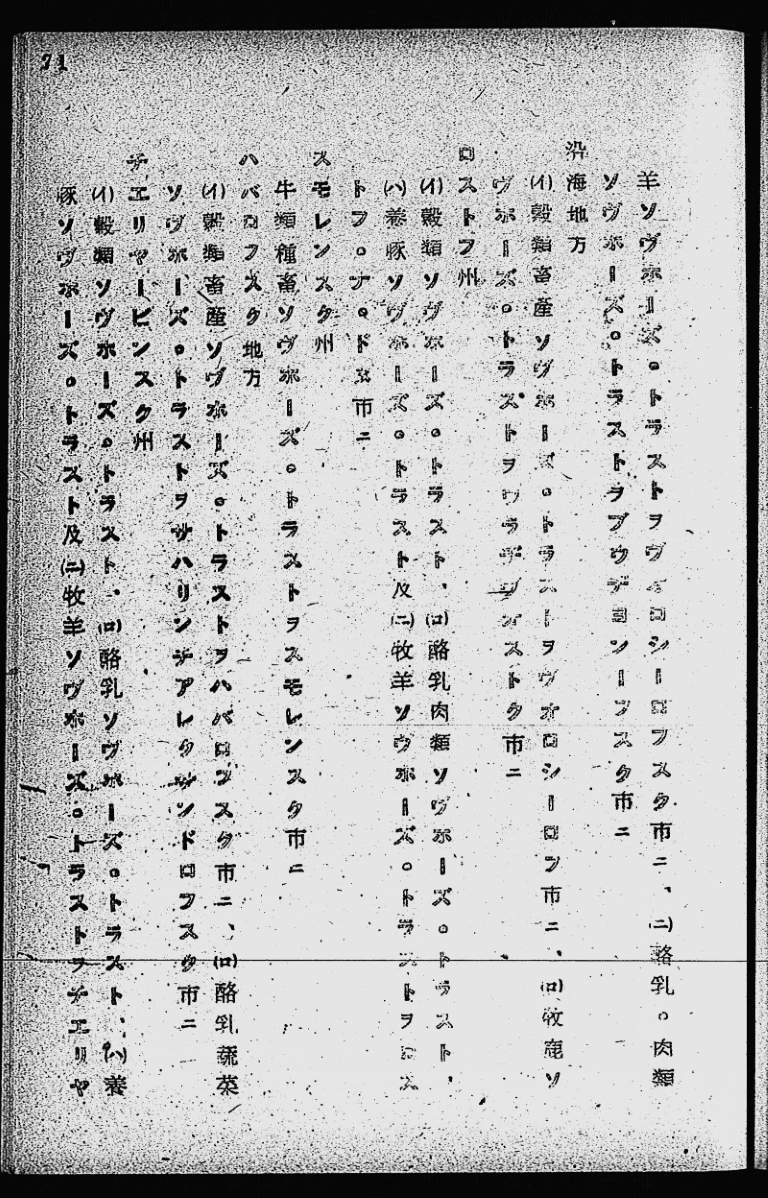 71
羊ソヴホーズ。トラストヲヴオロシーロフスク市ニ、(ニ)酪乳。肉類
ソヴホーズ。トラストヲブウヂヨンーフスク市ニ
沿海地方
(イ)穀類畜産ソヴホーズ。トラストヲヴオロシーロフ市ニ、(ロ)牧鹿ソ
ヴホーズ。トラストヲウラヂヴオストク市ニ
ロストフ州
(イ)穀類ソヴホーズ。トラスト、(ロ)酪乳肉類ソヴホーズ。トラスト、
(ハ)養豚ソヴホーズ。トラスト及(ニ)牧羊ソウホーズ。トラストヲロス
トフ。ナ。ドヌ市ニ
スモレンスク州
牛類種畜ソヴホーズ。トラストヲスモレンスク市ニ
ハバロフスク地方
(イ)穀類畜産ソヴホーズ。トラストヲハバロフスク市ニ、(ロ)酪乳蔬菜
ソヴホーズ。トラストヲサハリンヂアレクサンドロフスク市ニ
チエリヤービンスク州
(イ)穀類ソヴホーズ。トラスト、(ロ)酪乳ソヴホーズ。トラスト、(ハ)養
豚ソヴホーズ。トラスト及(ニ)牧羊ソヴホーズ。トラストヲチエリヤ